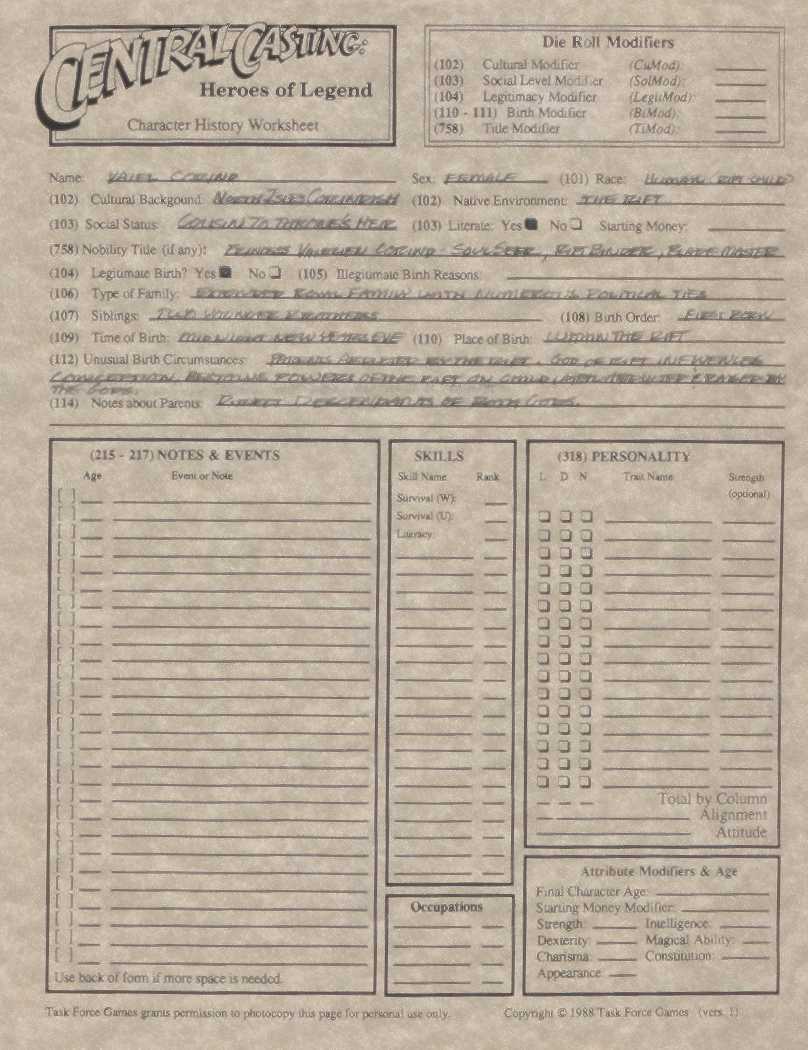 CENTRAL CASTING:
Heroes of Legend
Character History Worksheet
Die Roll Modifiers
(102) Cultural Modifier (CuMod):
(103) Social Level Modifier (SolMod):
(104) Legitimacy Modifier (LegitMod):
(110 - 111) Birth Modifier (BiMod):
(758) Title Modifier (TiMod):
Name: VALEL CORIND Sex: FEMALE (101) Race: HUMAN (RIFT CHILD)
(102) Cultural Backgound: NORTH ISLES (102) Native Environment: THE RIFT
(103) Social Status: COUSIN TO THRONE'S HEIR (103) Literate: Yes No Starting Money:
(758) Nobility Title (if any): PRINCESS CORIND - SOULSEER, RIFT BINDER, BLADE MASTER
(104) Legitimate Birth? Yes No (105) Illegitimate Birth Reasons:
(106) Type of Family: EXTENDED ROYAL FAMILY WITH NUMEROUS POLITICAL TIES
(107) Siblings: TWO YOUNGER BROTHERS (108) Birth Order: FIRST BORN
(109) Time of Birth: MIDNIGHT NEW YEARS EVE (110) Place of Birth: WITHIN THE RIFT
(112) Unusual Birth Circumstances: PARENTS BY THE RIFT. GOD OF RIFT INFLUENCED
CONCEPTION POWERS OF THE RIFT ON CHILD RAISED BY
THE GODS.
(114) Notes about Parents: DIRECT DESCENDANTS OF BOTH GODS.
(215 - 217) NOTES & EVENTS
Age Event or Note
Use back of form if more space is needed.
SKILLS
Skill Name Rank
Survival (W):
Survival (U):
Literacy:
Occupations
(318) PERSONALITY
L D N Trait Name Strength
(optional)
Total by Column
Alignment
Attitude
Attribute Modifiers & Age
Final Character Age:
Starting Money Modifier:
Strength: Intelligence:
Dexterity: Magical Ability:
Charisma: Constitution:
Appearance:
Task Force Games grants permission to photocopy this page for personal use only. Copyright © 1988 Task Force Games (vers. 1)